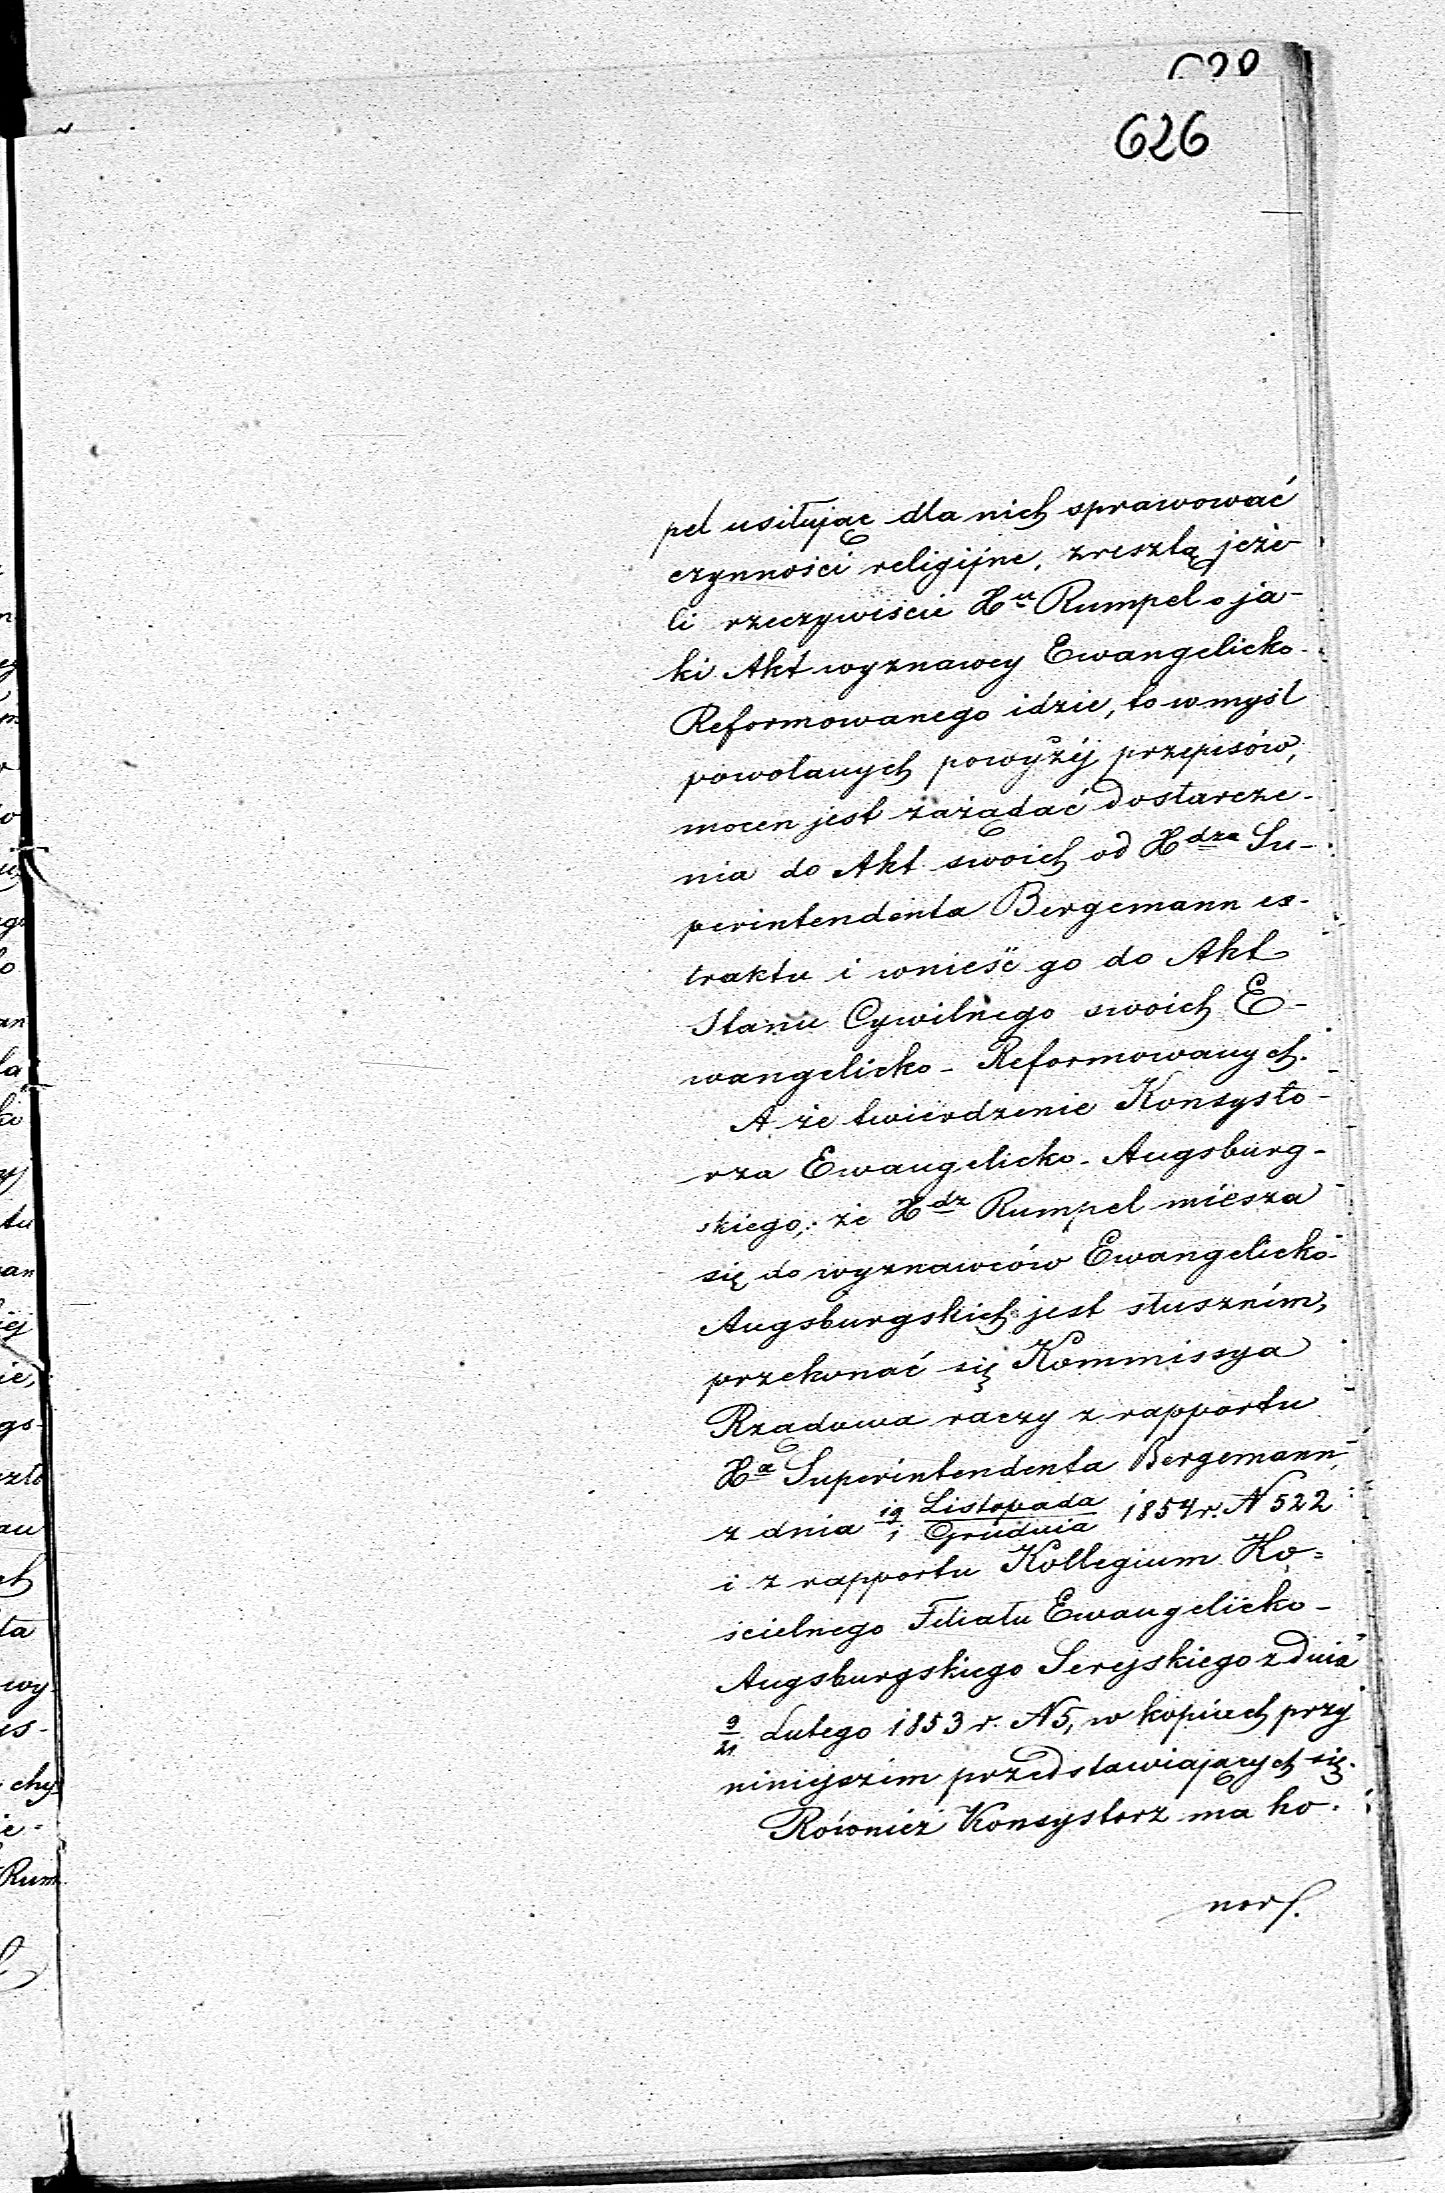 626
pel usiłując dla nich sprawować
czynności religijne, zresztą jeże-
li rzeczywiście Xu Rumpel o ja-
ki Akt wyznawcy Ewangelicko-
Reformowanego idzie, to w myśl
powołanych powyżéj przepisów,
mocen jest zażądać dostarcze-
nia do Akt swoich od Xdza Su-
perintendenta Bergemann ex-
traktu i wnieść go do Akt
Stanu Cywilnego swoich E-
wangelicko-Reformowanych.
A że twierdzenie Konsysto-
rza Ewangelicko-Augsburg-
skiego, że Xdz Rumpel miesza
się do wyznawców Ewangelicko-
Augsburgskich jest słuszném,
przekonać się Kommissya
Rządowa raczy z rapportu
Xa Superintendenta Bergemann
z dnia 19/1 Listopada/Grudnia 1854 r. N 522
i z rapportu Kollegium Ko-
ścielnego Filiału Ewangelicko-
Augsburgskiego Serejskiego z dnia
9/21 Lutego 1853 r. N 5, w kopiach przy
niniejszém przedstawiających się.
Również Konsystorz ma ho-
nor